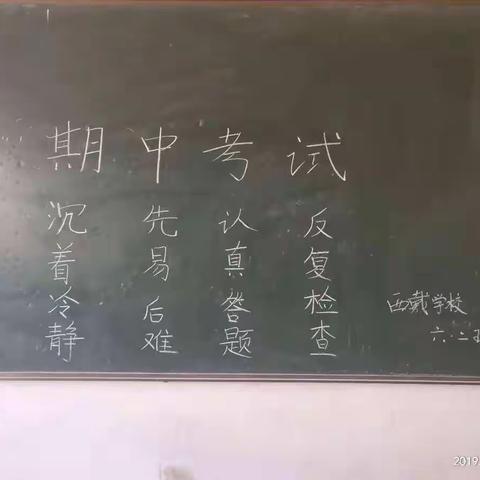 期中考试
沉着冷静
先易后难
认真答题
反复检查
西藏学校
六.二班
2019